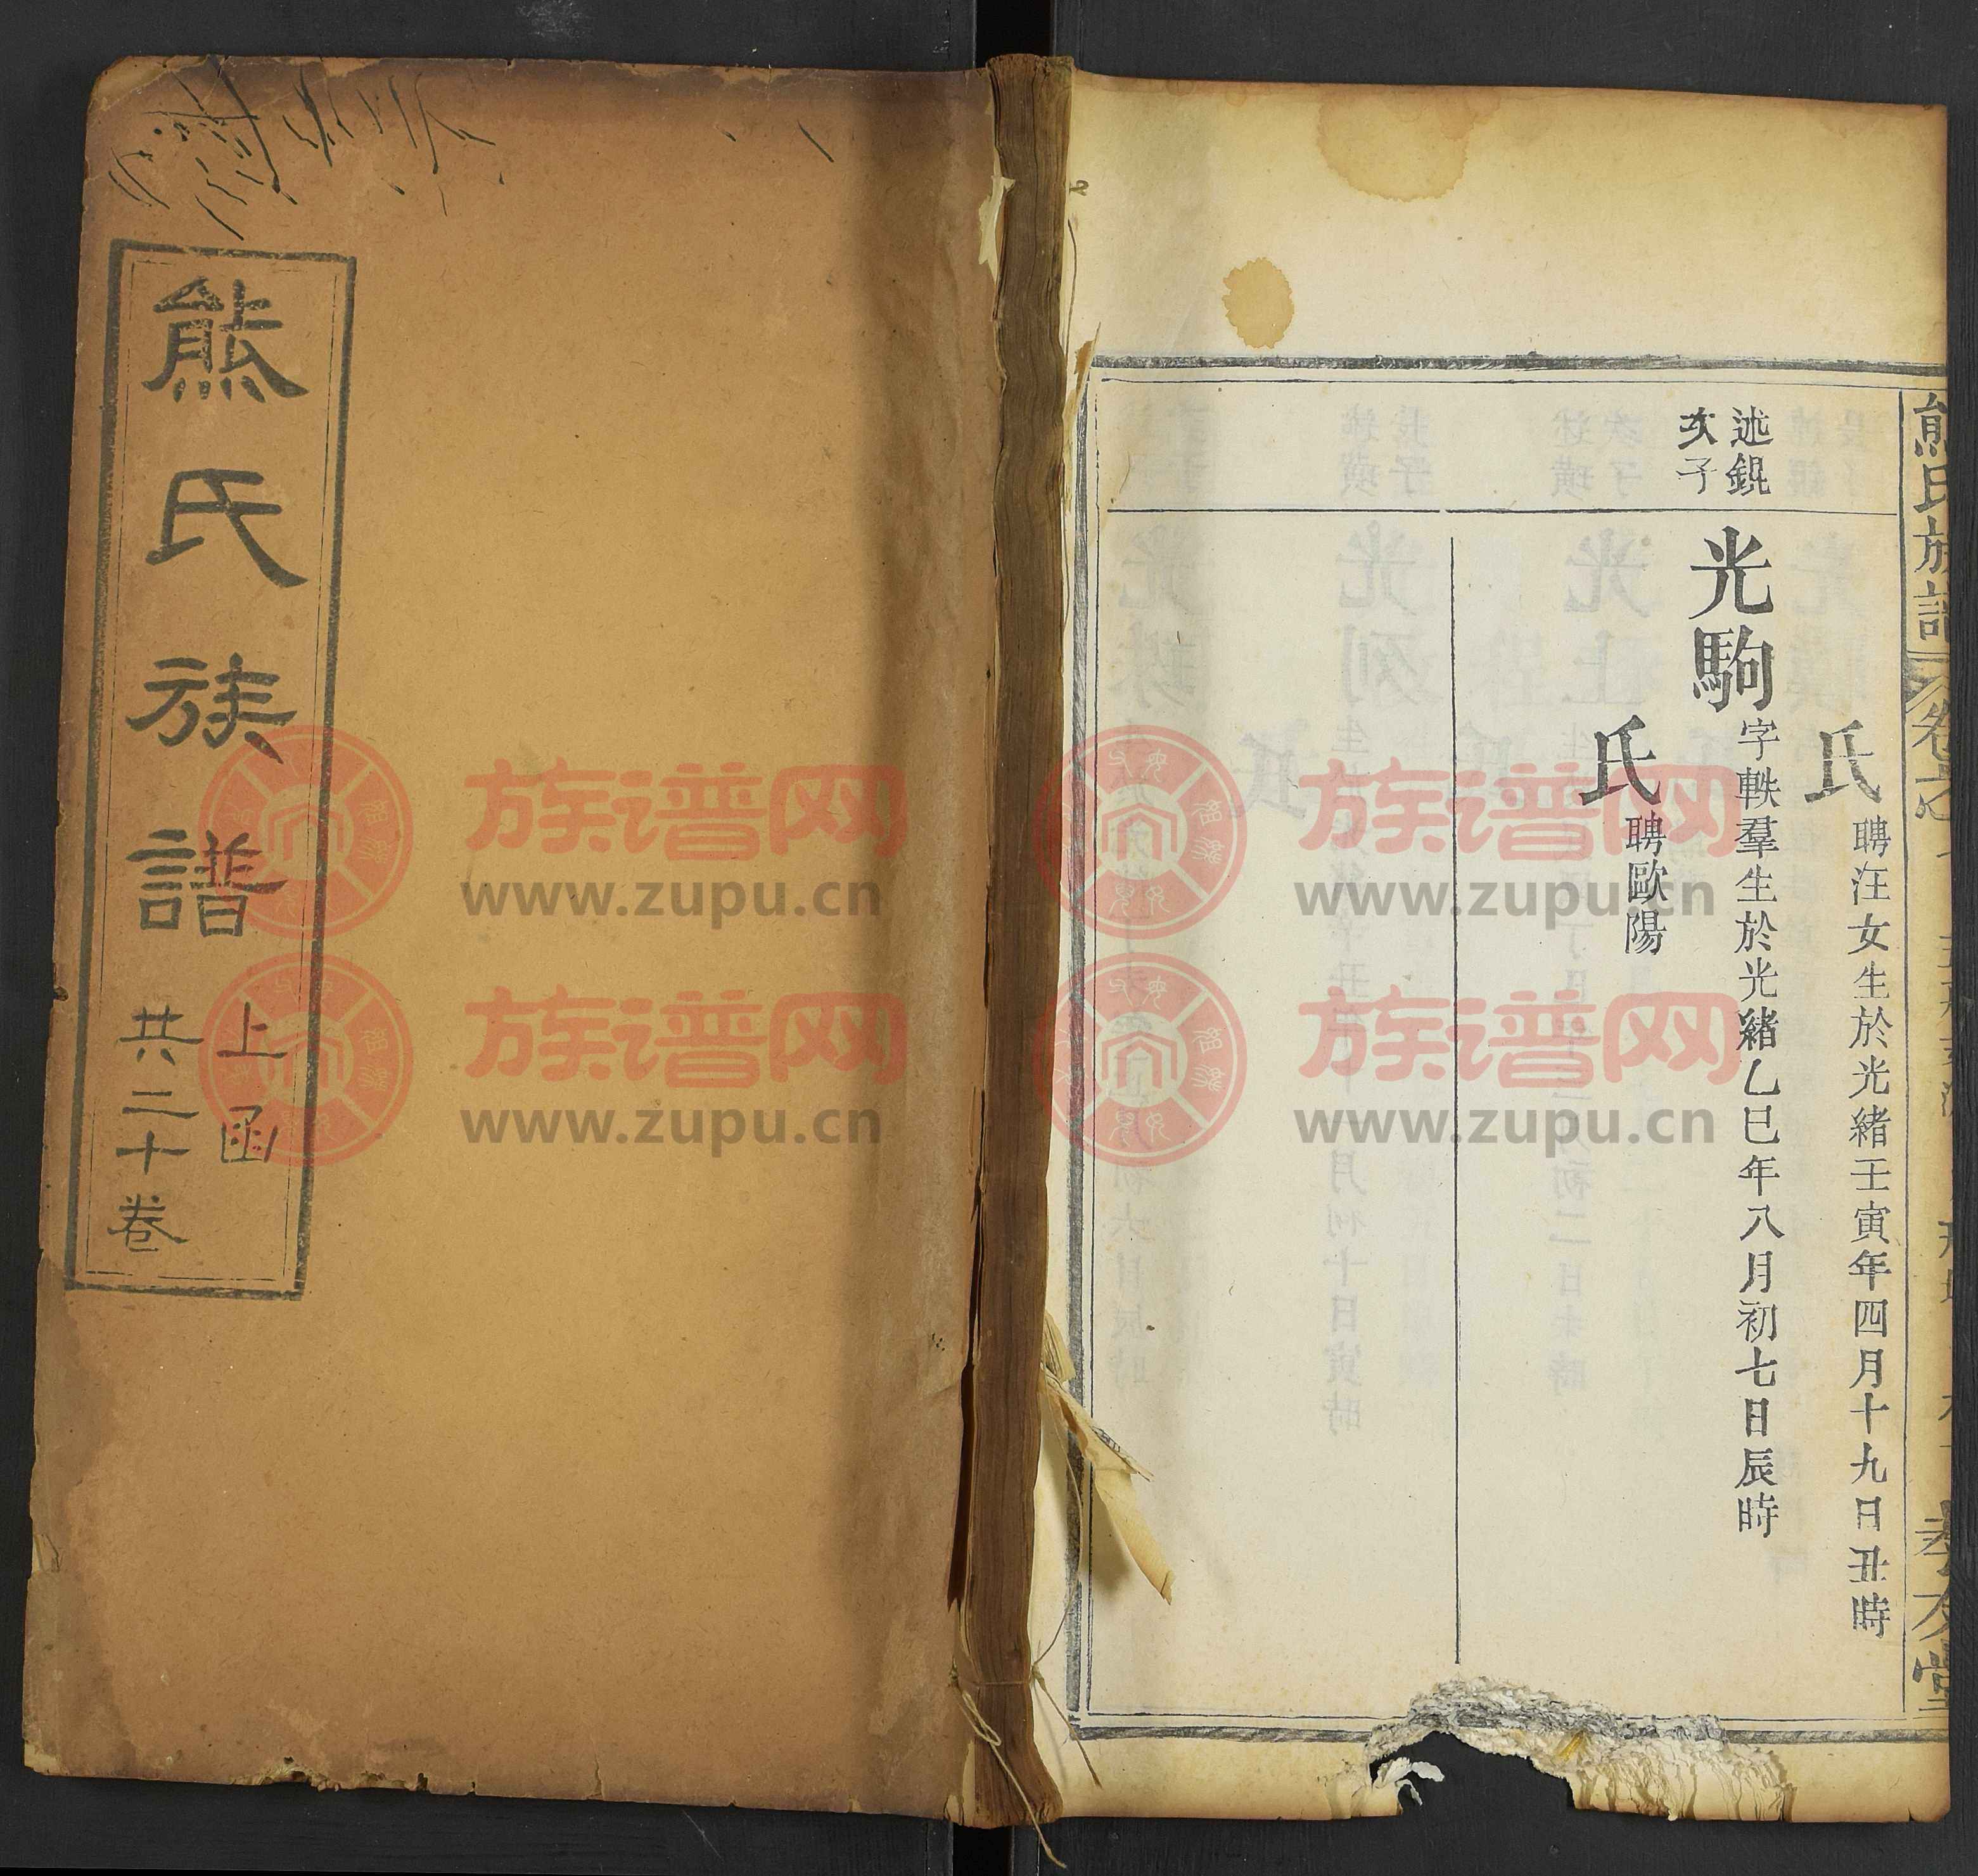 熊氏族譜
上函
共二十卷
熊氏族譜
孝友堂
氏
聘汪女生於光緒壬寅年四月十九日丑時
述錕
次子
光駒
字軼羣生於光緒乙巳年八月初七日辰時
氏
聘歐陽
族谱网
www.zupu.cn
族谱网
www.zupu.cn
族谱网
www.zupu.cn
族谱网
www.zupu.cn